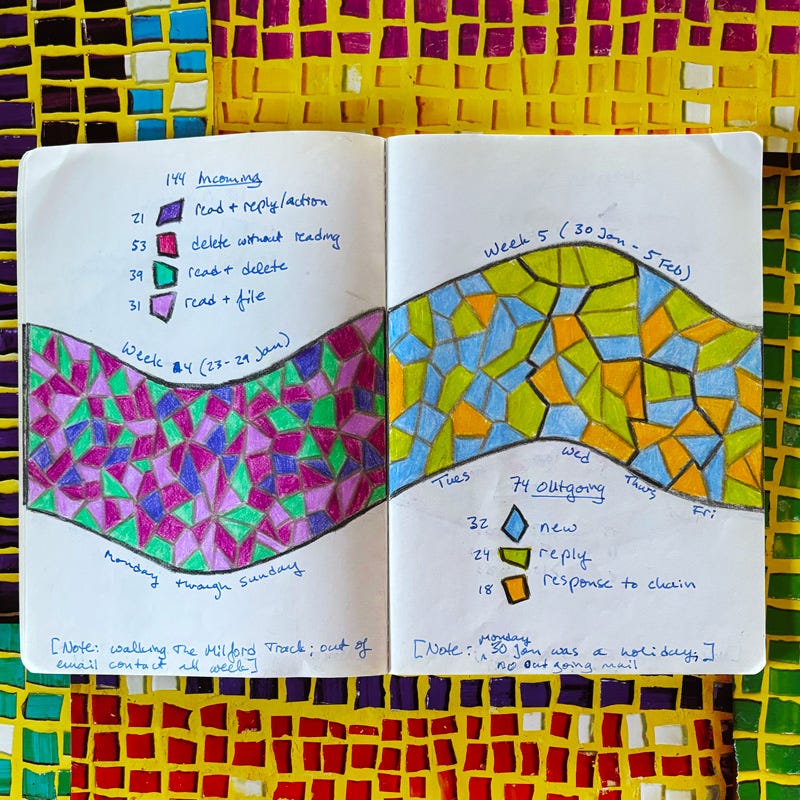 144 Incoming
21 read + reply/action
53 delete without reading
39 read + delete
31 read + file
Week 4 (23-29 Jan)
Monday through Sunday
[Note: walking the Milford Track; out of
email contact all week]
Week 5 (30 Jan - 5 Feb)
Tues
Wed
Thurs
Fri
74 Outgoing
32 new
24 reply
18 response to chain
[Note: Monday 30 Jan was a holiday;
no outgoing mail]